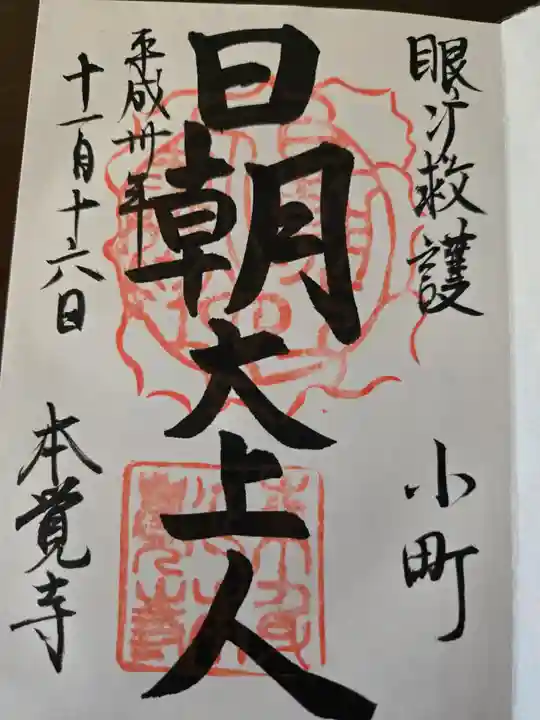 眼疒救護
小町
日朝大上人
平成卅年
十一月十六日
本覚寺